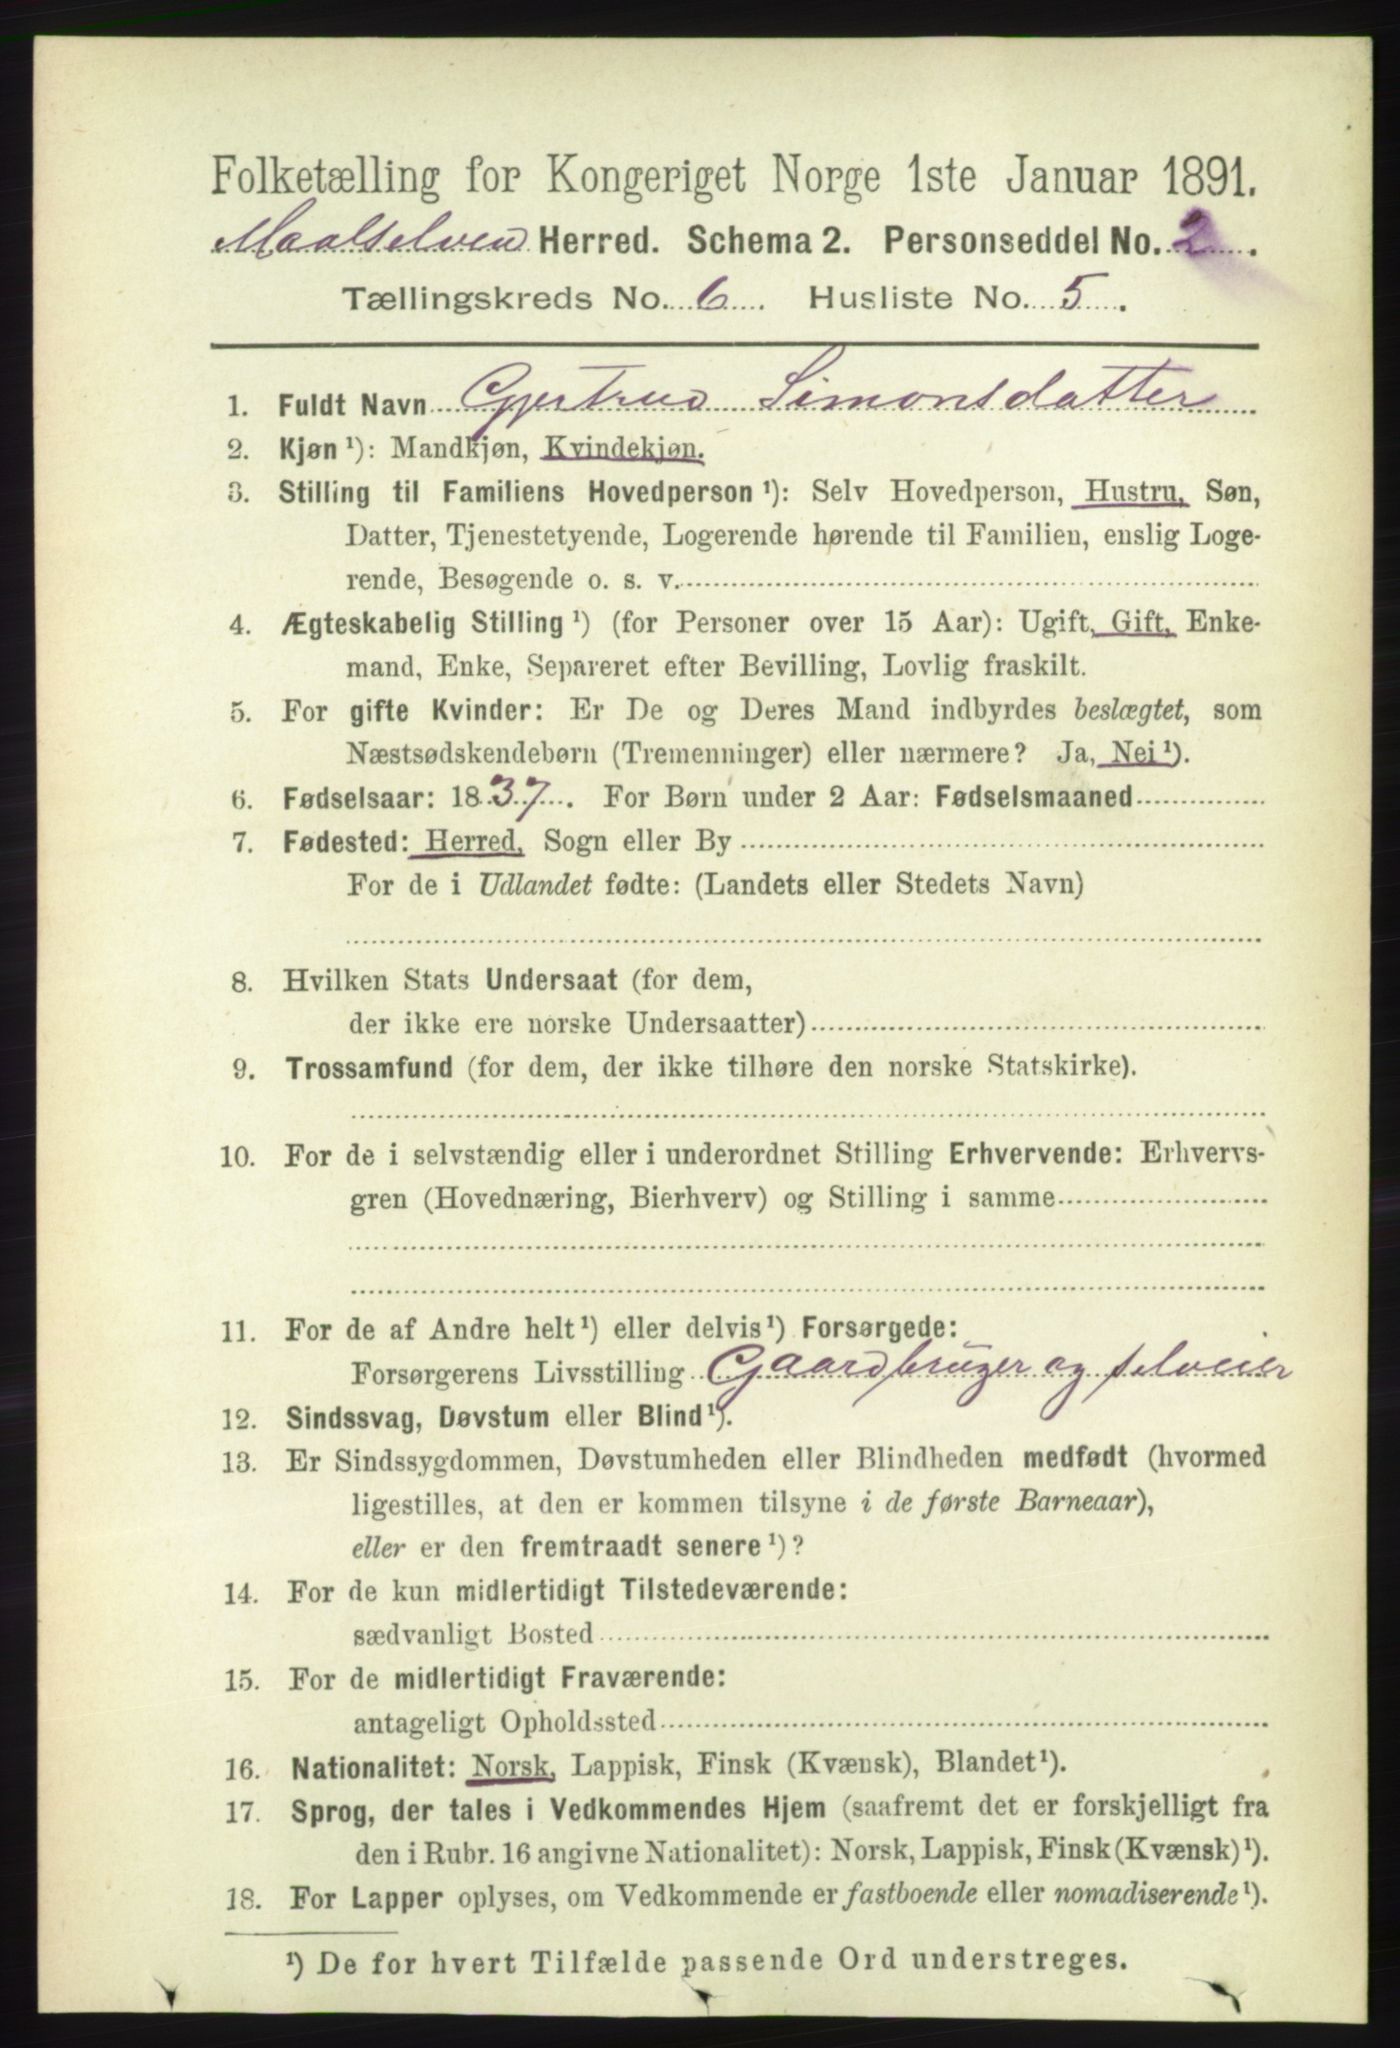 Folketælling for Kongeriget Norge 1ste Januar 1891.
Maalselven Herred. Schema 2. Personseddel No. 2.
Tællingskreds No. 6. Husliste No. 5.
1. Fuldt Navn Gjertrud Simonsdatter
2. Kjøn ¹): Mandkjøn, Kvindekjøn.
3. Stilling til Familiens Hovedperson ¹): Selv Hovedperson, Hustru, Søn,
Datter, Tjenestetyende, Logerende hørende til Familien, enslig Loge-
rende, Besøgende o. s. v.
4. Ægteskabelig Stilling ¹) (for Personer over 15 Aar): Ugift, Gift, Enke-
mand, Enke, Separeret efter Bevilling, Lovlig fraskilt.
5. For gifte Kvinder: Er De og Deres Mand indbyrdes beslægtet, som
Næstsødskendebørn (Tremenninger) eller nærmere? Ja, Nei ¹).
6. Fødselsaar: 1837. For Børn under 2 Aar: Fødselsmaaned
7. Fødested: Herred, Sogn eller By
For de i Udlandet fødte: (Landets eller Stedets Navn)
8. Hvilken Stats Undersaat (for dem,
der ikke ere norske Undersaatter)
9. Trossamfund (for dem, der ikke tilhøre den norske Statskirke).
10. For de i selvstændig eller i underordnet Stilling Erhvervende: Erhvervs-
gren (Hovednæring, Bierhverv) og Stilling i samme
11. For de af Andre helt ¹) eller delvis ¹) Forsørgede:
Forsørgerens Livsstilling Gaardbruger og selveier
12. Sindssvag, Døvstum eller Blind ¹).
13. Er Sindssygdommen, Døvstumheden eller Blindheden medfødt (hvormed
ligestilles, at den er kommen tilsyne i de første Barneaar),
eller er den fremtraadt senere ¹)?
14. For de kun midlertidigt Tilstedeværende:
sædvanligt Bosted
15. For de midlertidigt Fraværende:
antageligt Opholdssted
16. Nationalitet: Norsk, Lappisk, Finsk (Kvænsk), Blandet ¹).
17. Sprog, der tales i Vedkommendes Hjem (saafremt det er forskjelligt fra
den i Rubr. 16 angivne Nationalitet): Norsk, Lappisk, Finsk (Kvænsk) ¹).
18. For Lapper oplyses, om Vedkommende er fastboende eller nomadiserende ¹).
¹) De for hvert Tilfælde passende Ord understreges.